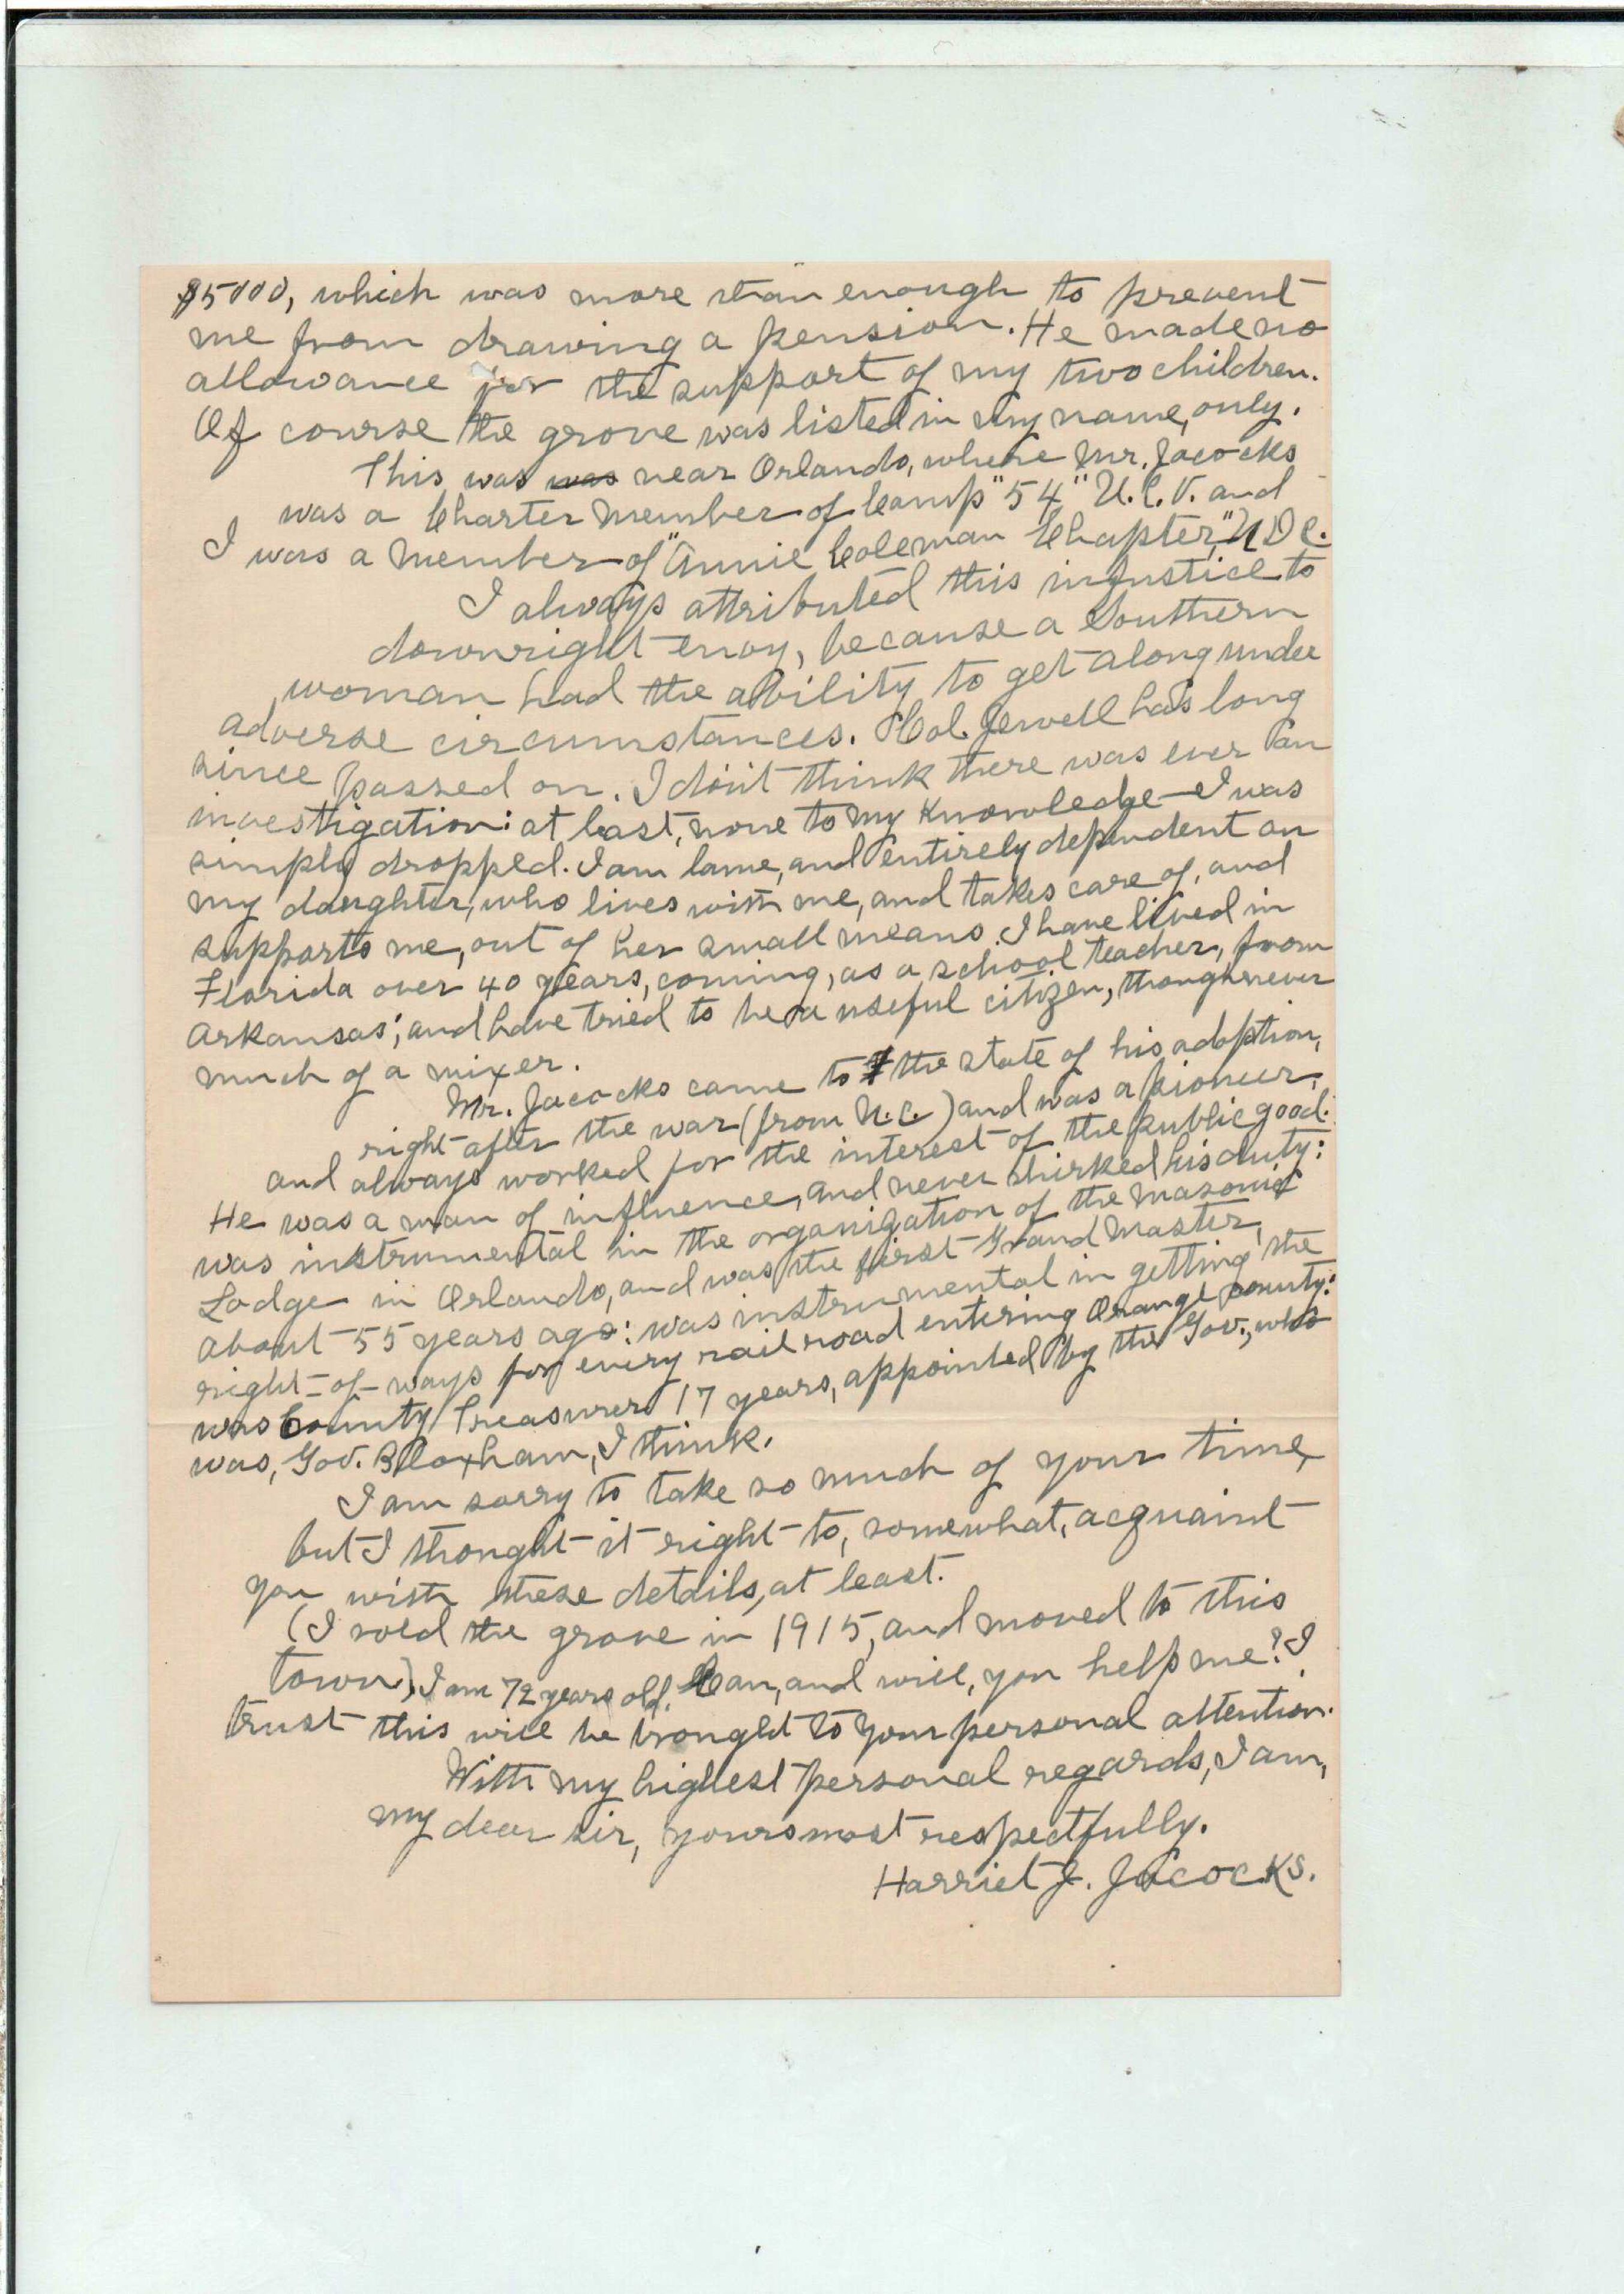 $5000, which was more than enough to prevent
me from drawing a pension. He made no
allowance for the support of my two children.
Of course the grove was listed in my name, only.
This was was near Orlando, where Mr. Jacocks
was a Charter Member of Camp "54" U.C.V. and
I was a member of "Annie Coleman Chapter," U D C.
I always attributed this injustice to
downright envy, because a Southern
woman had the ability to get along under
adverse circumstances. Col. Jewell has long
since passed on. I don't think there was ever an
investigation: at least, none to my knowledge - I was
simply dropped. I am lame, and entirely dependent on
my daughter, who lives with me, and takes care of, and
supports me, out of her small means. I have lived in
Florida over 40 years, coming, as a school teacher, from
Arkansas; and have tried to be a useful citizen, though never
much of a mixer.
Mr. Jacocks came to the state of his adoption,
right after the war (from N.C.) and was a pioneer,
and always worked for the interest of the public good.
He was a man of influence, and never shirked his duty:
was instrumental in the organization of the Masonic
Lodge in Orlando, and was the first Grand Master,
about 55 years ago: was instrumental in getting the
right-of-ways for every railroad entering Orange county:
was County Treasurer 17 years, appointed by the Gov., who
was, Gov. Bloxham, I think.
I am sorry to take so much of your time,
but I thought it right to, somewhat, acquaint
you with these details, at least.
(I sold the grove in 1915, and moved to this
town). I am 72 years old. Can, and will, you help me? I
trust this will be brought to your personal attention.
With my highest personal regards, I am,
my dear sir, yours most respectfully.
Harriet J. Jacocks.